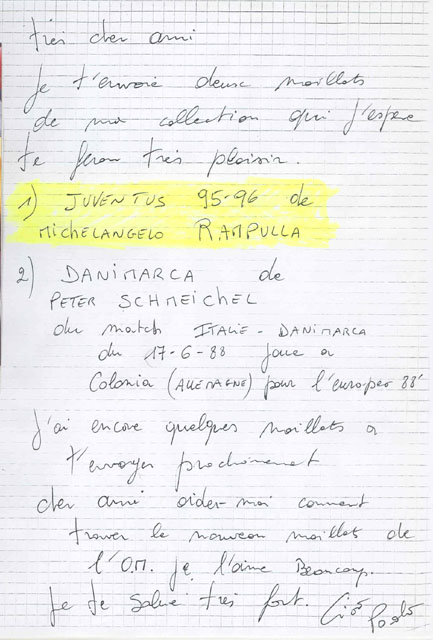 très cher ami
Je t'envoie deux maillots
de ma collection qui j'espere
te feran très plaisir.
1) JUVENTUS 95-96 de
MICHELANGELO RAMPULLA
2) DANIMARCA de
PETER SCHMEICHEL
du match ITALIE - DANIMARCA
du 17-6-88 joue a
Colonia (ALLEMAGNE) pour l'europeo 88'
J'ai encore quelques maillots a
t'envoyer prochainement
cher ami aider-moi comment
trouver le nouveau maillot de
l'O.M. je l'aime Beaucoup.
Je te salue très fort. Ciao Paolo